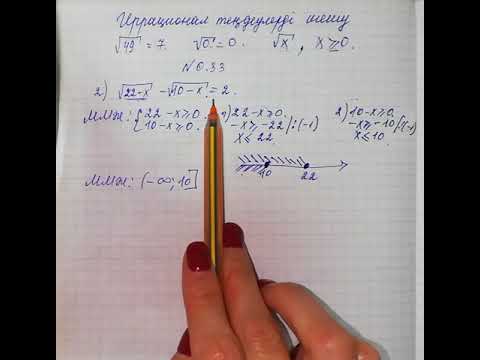 Иррационал теңдеулерді шешу
√49 = 7. √0 = 0. √x, x ≥ 0.
№ 6.33
2) √22-x - √10-x = 2.
ММЖ: { 22 - x ≥ 0. 1) 22 - x ≥ 0. 2) 10 - x ≥ 0.
10 - x ≥ 0. -x ≥ -22 | : (-1) -x ≥ -10 /(-1)
x ≤ 22. x ≤ 10.
10 22
ММЖ: (-∞; 10]